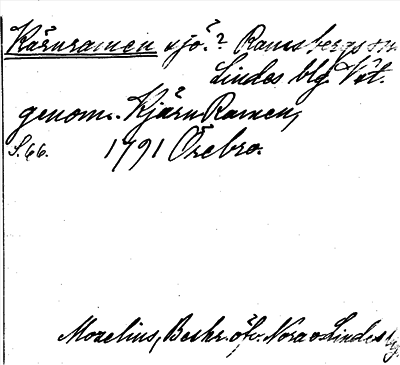 Kärnramen sjö? Ramsbergs sn
Lindes blg. Vstl.
genom. Kjärn Ramen,
S. 66. 1791 Örebro.
Mozelius, Beskr. öfv. Nora o Lindes bg.